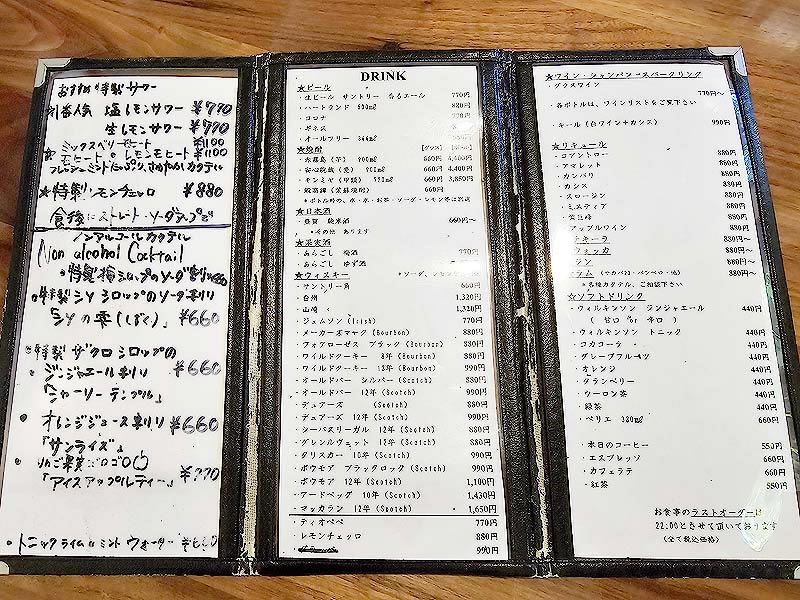 おすすめ 特製サワー
1番人気 塩レモンサワー ¥770
生レモンサワー ¥770
ミックスベリーモヒート ¥1100
モヒート レモンモヒート ¥1100
フレッシュミントたっぷり、さわやかカクテル
★特製レモンチェッロ ¥880
食後にストレート・ソーダアップで
ノンアルコールカクテル
Non alcohol Cocktail
特製 シロップのソーダ割り 660
特製 シソ シロップのソーダ割り
「シソの雫(しずく)」 ¥660
特製 ザクロシロップの
ジンジャエール割り ¥660
「シャーリーテンプル」
オレンジジュース割り ¥660
「サンライズ」
りんご果実ゴロゴロ
「アイスアップルティー」 ¥770
トニックライムミントウォーター
DRINK
★ビール
・生ビール サントリー 香るエール 770円
・ハートランド 500ml 880円
・コロナ 770円
・ギネス
・オールフリー 334ml
★焼酎 (グラス) (ボトル)
・赤霧島(芋) 900ml 660円 4,400円
・安心院蔵(麦) 900ml 660円 4,400円
・キンミヤ(甲類) 660円 3,850円
・鍛高譚(紫蘇焼酎) 660円
★日本酒
660円～
*その他 あります
★果実酒
・あらごし 梅酒 770円
・あらごし ゆず酒
★ウィスキー
・サントリー角 660円
・白州 1,320円
・山崎 1,320円
・ジェムソン (Irish) 770円
・メーカーズマーク (Bourbon) 880円
・フォアローゼス ブラック (Bourbon) 880円
・ワイルドターキー 8年 (Bourbon) 880円
・ワイルドターキー 13年 (Bourbon) 990円
・オールドパー シルバー (Scotch) 880円
・オールドパー 12年 (Scotch) 990円
・デュアーズ (Scotch) 880円
・デュアーズ 12年 (Scotch) 990円
・シーバスリーガル 12年 (Scotch) 880円
・グレンリヴェット 12年 (Scotch) 880円
・タリスカー 10年 (Scotch) 990円
・ボウモア ブラックロック (Scotch) 990円
・ボウモア 12年 (Scotch) 1,100円
・アードベッグ 10年 (Scotch) 1,430円
・マッカラン 12年 (Scotch) 1,650円
・ティオペペ 770円
・レモンチェッロ 880円
990円
★ワイン・シャンパン・スパークリング
・グラスワイン
770円～
・各ボトルは、ワインリストをご覧下さい
・キール(白ワイン+カシス) 990円
★リキュール
・コアントロー 880円
・アマレット 880円
・カンパリ 880円
・カシス 880円
・スロージン 880円
・ミスティア 880円
880円
・アップルワイン 880円
・テキーラ 880円～
・ウォッカ 880円～
・ジン 880円～
・ラム 880円～
*各種カクテル、ご相談下さい
☆ソフトドリンク
・ウィルキンソン ジンジャエール 440円
( 甘口 or 辛口 )
・ウィルキンソン トニック 440円
・コカコーラ 440円
・グレープフルーツ 440円
・オレンジ 440円
・クランベリー 440円
・ウーロン茶 440円
・緑茶 440円
・ペリエ 330ml 660円
・本日のコーヒー 550円
・エスプレッソ 660円
・カフェラテ 660円
・紅茶 550円
お食事のラストオーダーは
22:00とさせて頂いております
(全て税込価格)